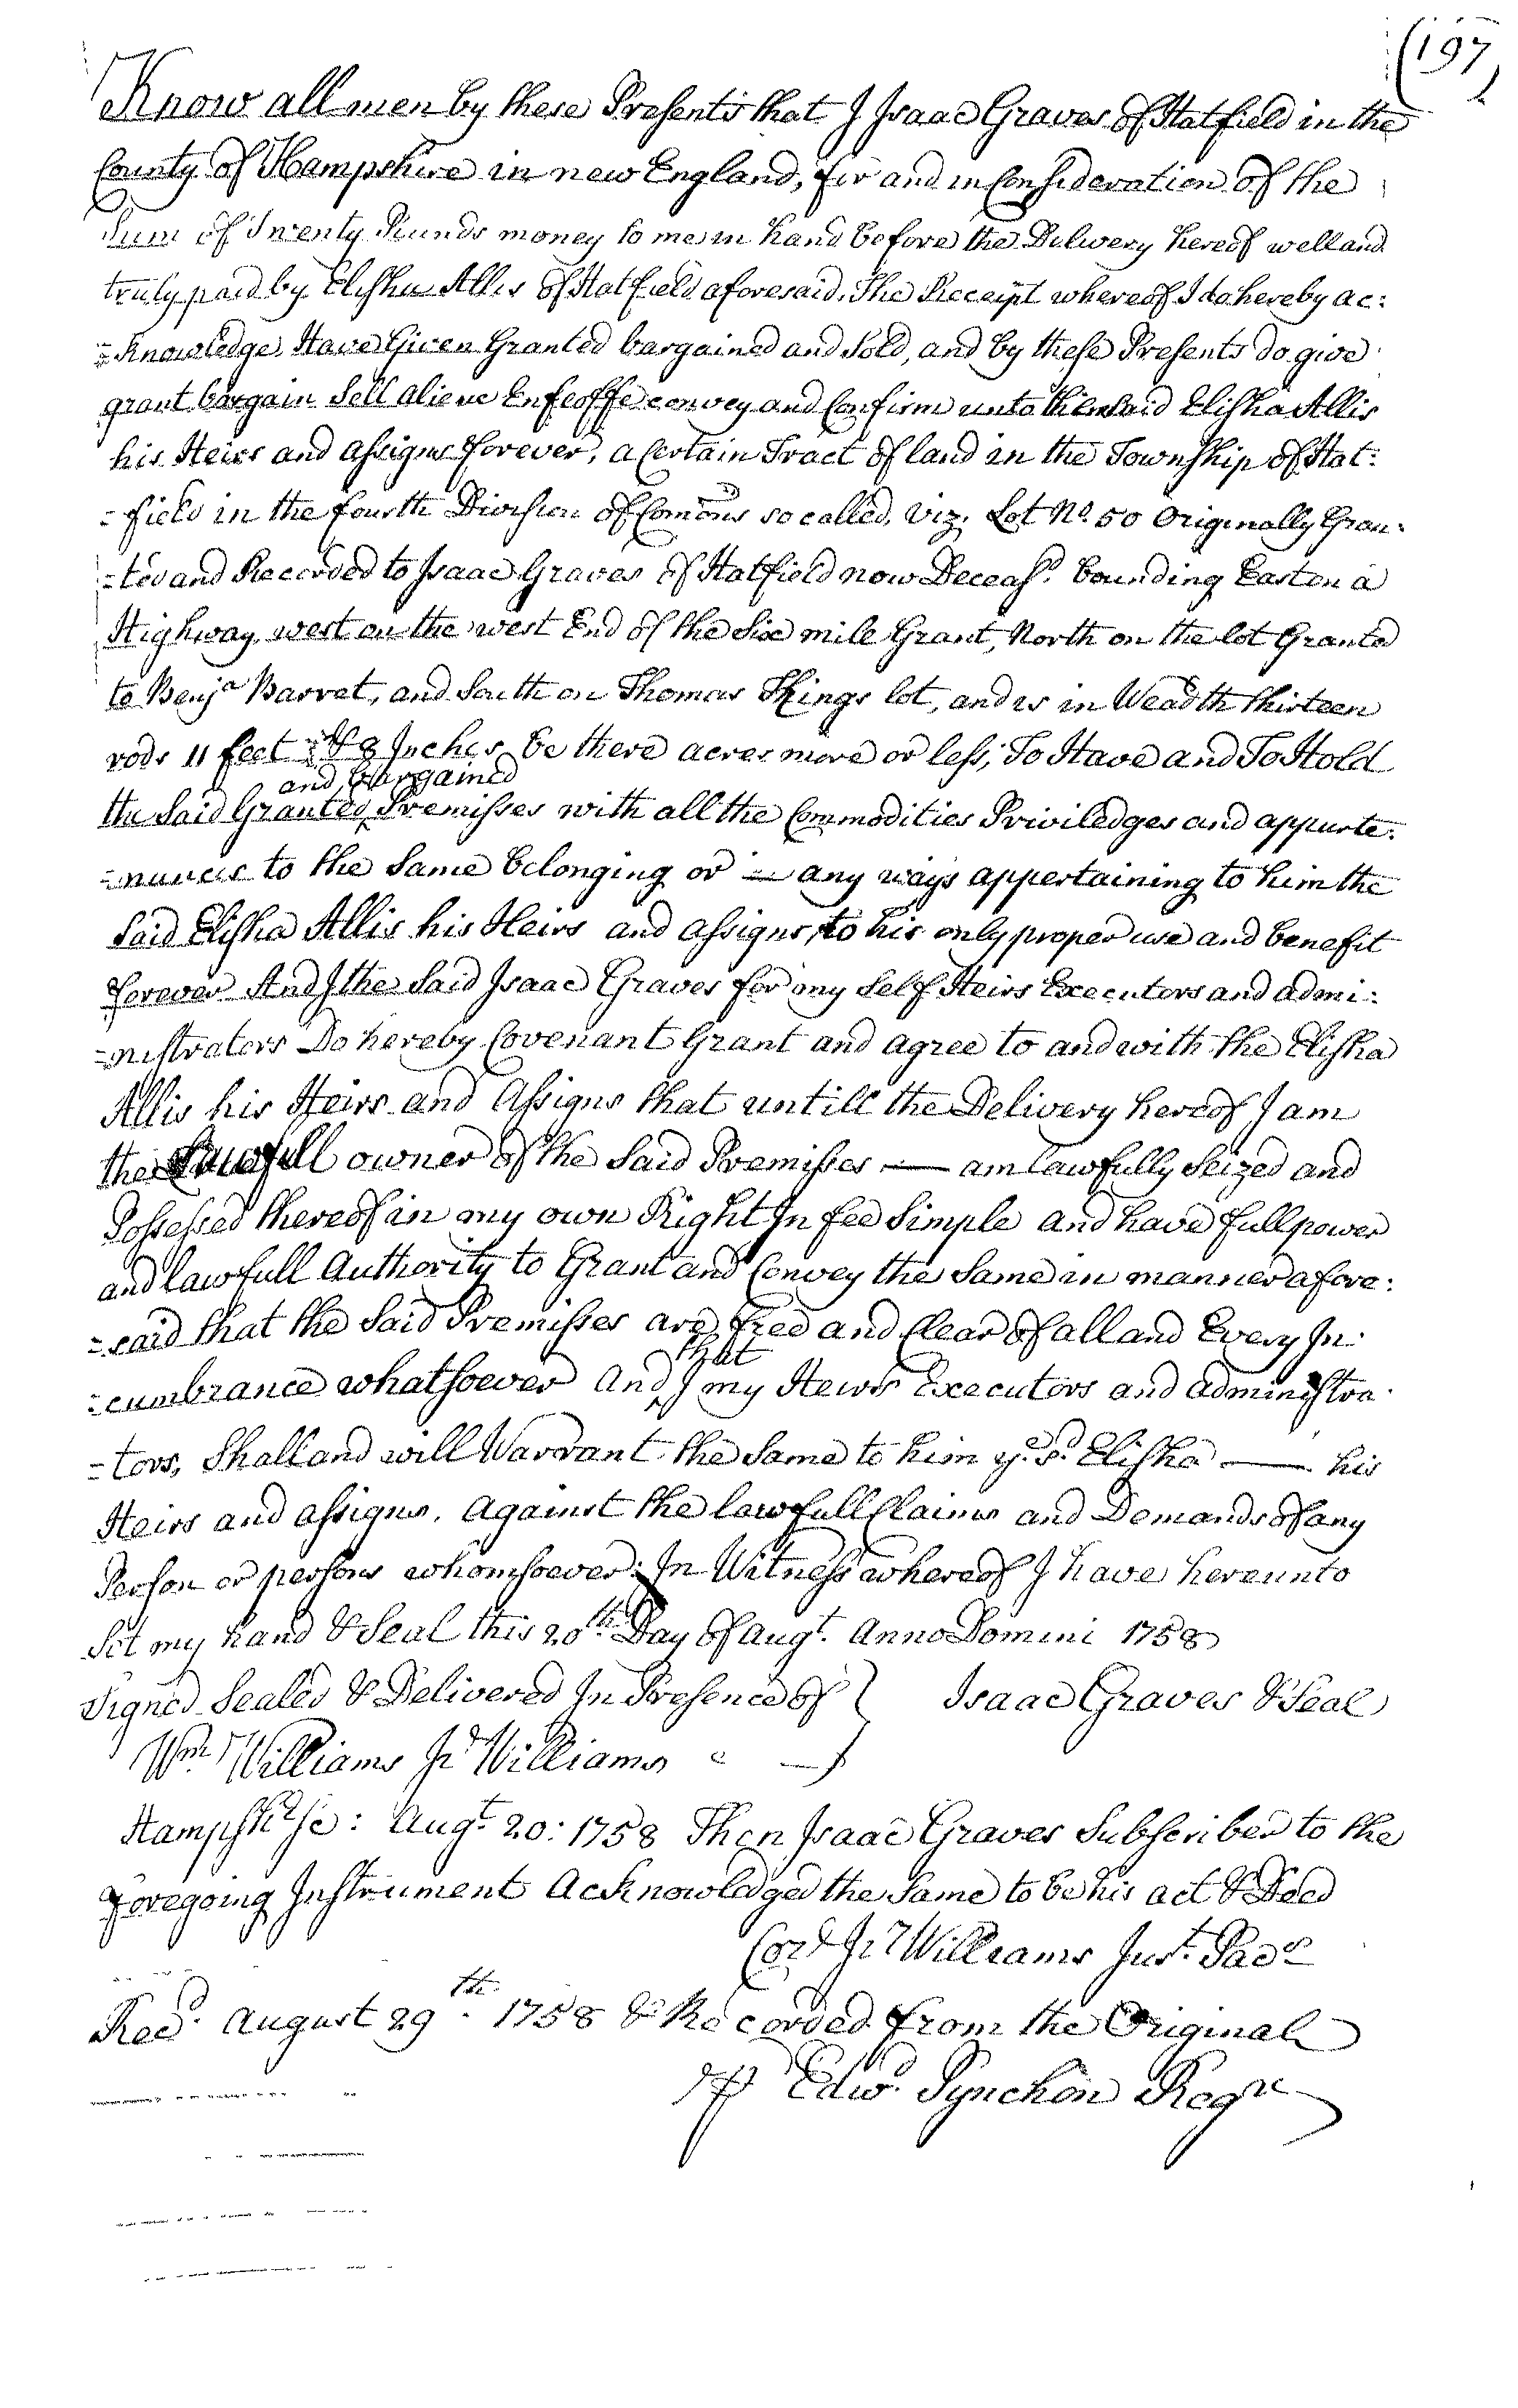 (197)
Know all men by these Presents that I Isaac Graves of Hatfield in the
County of Hampshire in new England, for and in Consideration of the
Sum of Twenty Pounds money to me in hand before the Delivery hereof well and
truly paid by Elisha Allis of Hatfield aforesaid, The Receipt whereof I do hereby ac:
=Knowledge, Have Given Granted bargained and Sold, and by these Presents do give
grant bargain Sell aliene Enfeoffe convey and Confirm unto him Said Elisha Allis
his Heirs and assigns forever, a Certain Tract of land in the Township of Hat:
=field in the fourth Division of Comons so called, viz. Lot No. 50 Originally Gran:
=ted and Recorded to Isaac Graves of Hatfield now Deceasd. bounding East on a
Highway, west on the west End of the Six mile Grant, North on the lot Granted
to Benja Barret, and South on Thomas Kings lot, and is in Weadth thirteen
rods 11 feet & 8 Inches be there acres more or less, To Have and To Hold
and bargained
the Said Granted ^ Premisses with all the Commodities Priviledges and appurte:
=nances to the Same belonging or in any ways appertaining to him the
Said Elisha Allis his Heirs and assigns, to his only proper use and benefit
forever And I the Said Isaac Graves for my Self Heirs Executors and admi:
=nistrators Do hereby Covenant Grant and agree to and with the Elisha
Allis his Heirs and Assigns that untill the Delivery hereof I am
the Lawfull owner of the Said Premisses — am lawfully Seized and
Possessed thereof in my own Right In fee Simple and have full power
and lawfull Authority to Grant and Convey the Same in manner afore:
=said that the Said Premisses are free and Clear of all and Every In:
that
=cumbrance whatsoever and ^ I my Heirs Executors and administra:
=tors, Shall and will Warrant the Same to him ye. sd. Elisha — his
Heirs and assigns, against the lawfull Claims and Demands of any
Person or persons whomsoever: In Witness whereof I have hereunto
Set my hand & Seal this 20th Day of Augt. Anno Domini 1758
Signed Sealed & Delivered In Presence of } Isaac Graves & Seal
Wm Williams Jr Williams }
Hampshr ss: Augt 20: 1758 Then Isaac Graves Subscriber to the
foregoing Instrument Acknowledged the Same to be his act & Deed
Cord Jr Williams Just. Pacs
Recd. August 29th. 1758 & Recorded from the Original
P Edwd. Pynchon Regr